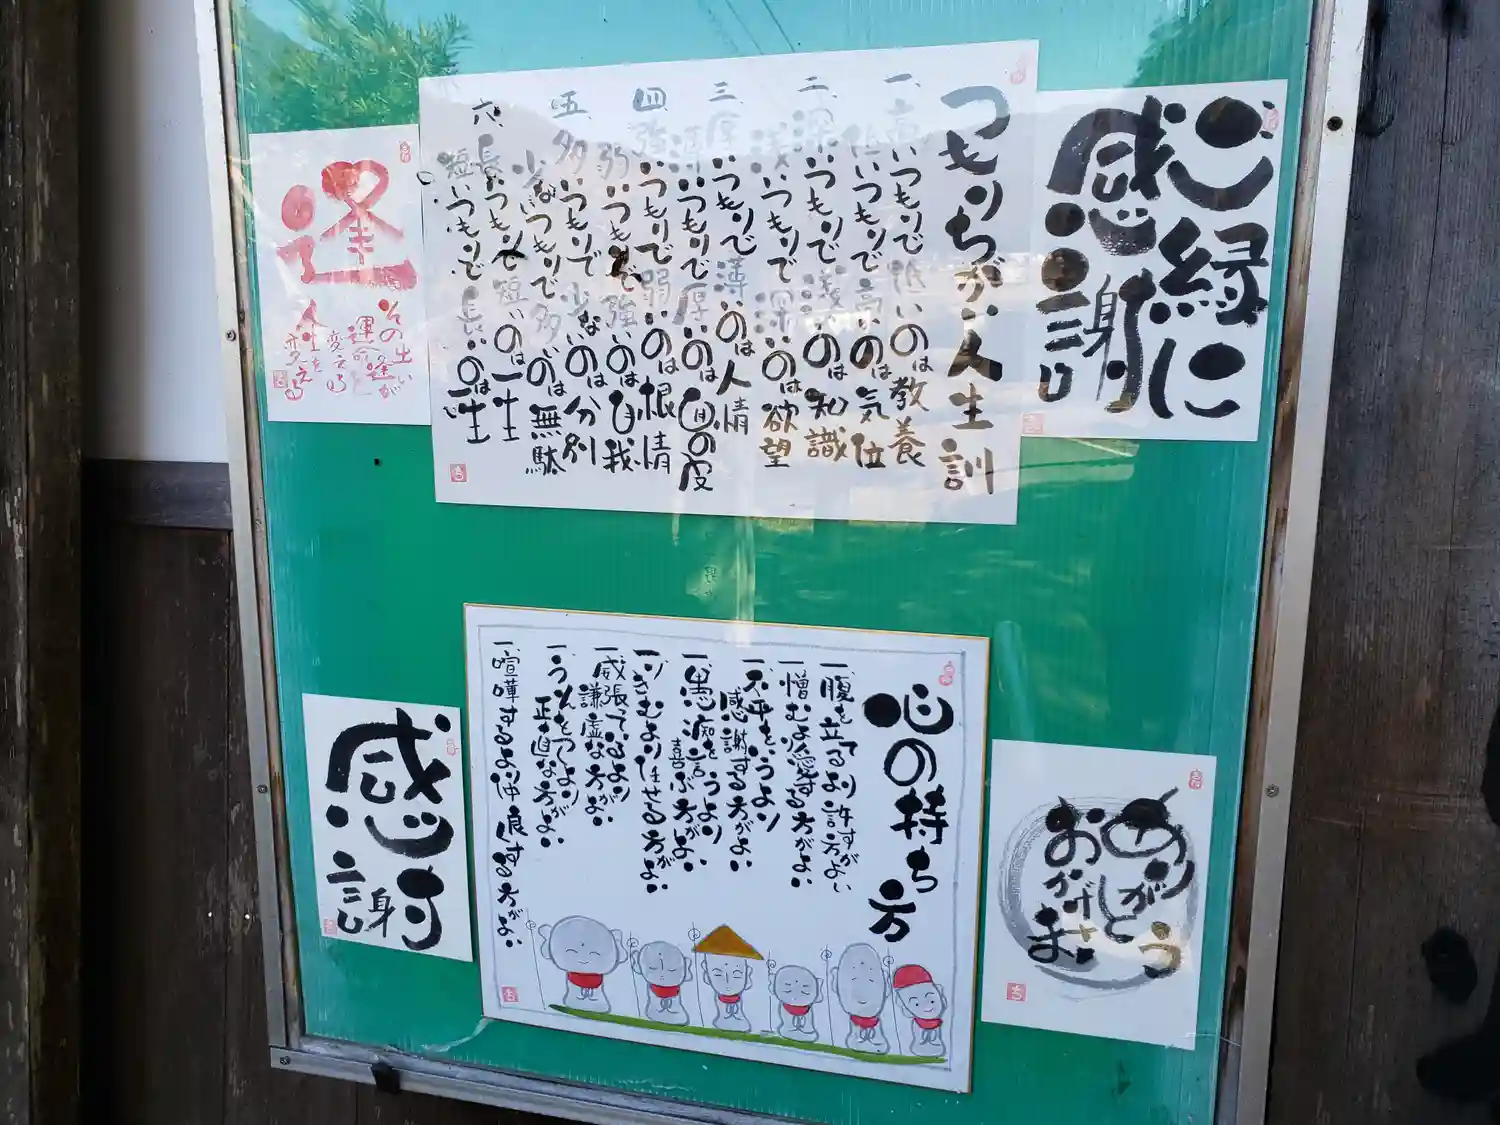 ご縁に
感謝
つもりちがい人生訓
一、高いつもりで低いのは教養
低いつもりで高いのは気位
二、深いつもりで浅いのは知識
浅いつもりで深いのは欲望
三、厚いつもりで薄いのは人情
薄いつもりで厚いのは面の皮
四、強いつもりで弱いのは根情
弱いつもりで強いのは自我
五、多いつもりで少ないのは分別
少ないつもりで多いのは無駄
六、長いつもりで短いのは一生
短いつもりで長いのは一生
逢
その出逢いが
運命を
変える
人生を
変える
心の持ち方
一、腹を立てるより許すがよい
一、憎むより愛する方がよい
一、不平をいうより
感謝する方がよい
一、愚痴を言うより
喜ぶ方がよい
一、りきむより任せる方がよい
一、威張っているより
謙虚な方がよい
一、うそをつくより
正直な方がよい
一、喧嘩するより仲良くする方がよい
ありがとう
おかげさま
感謝